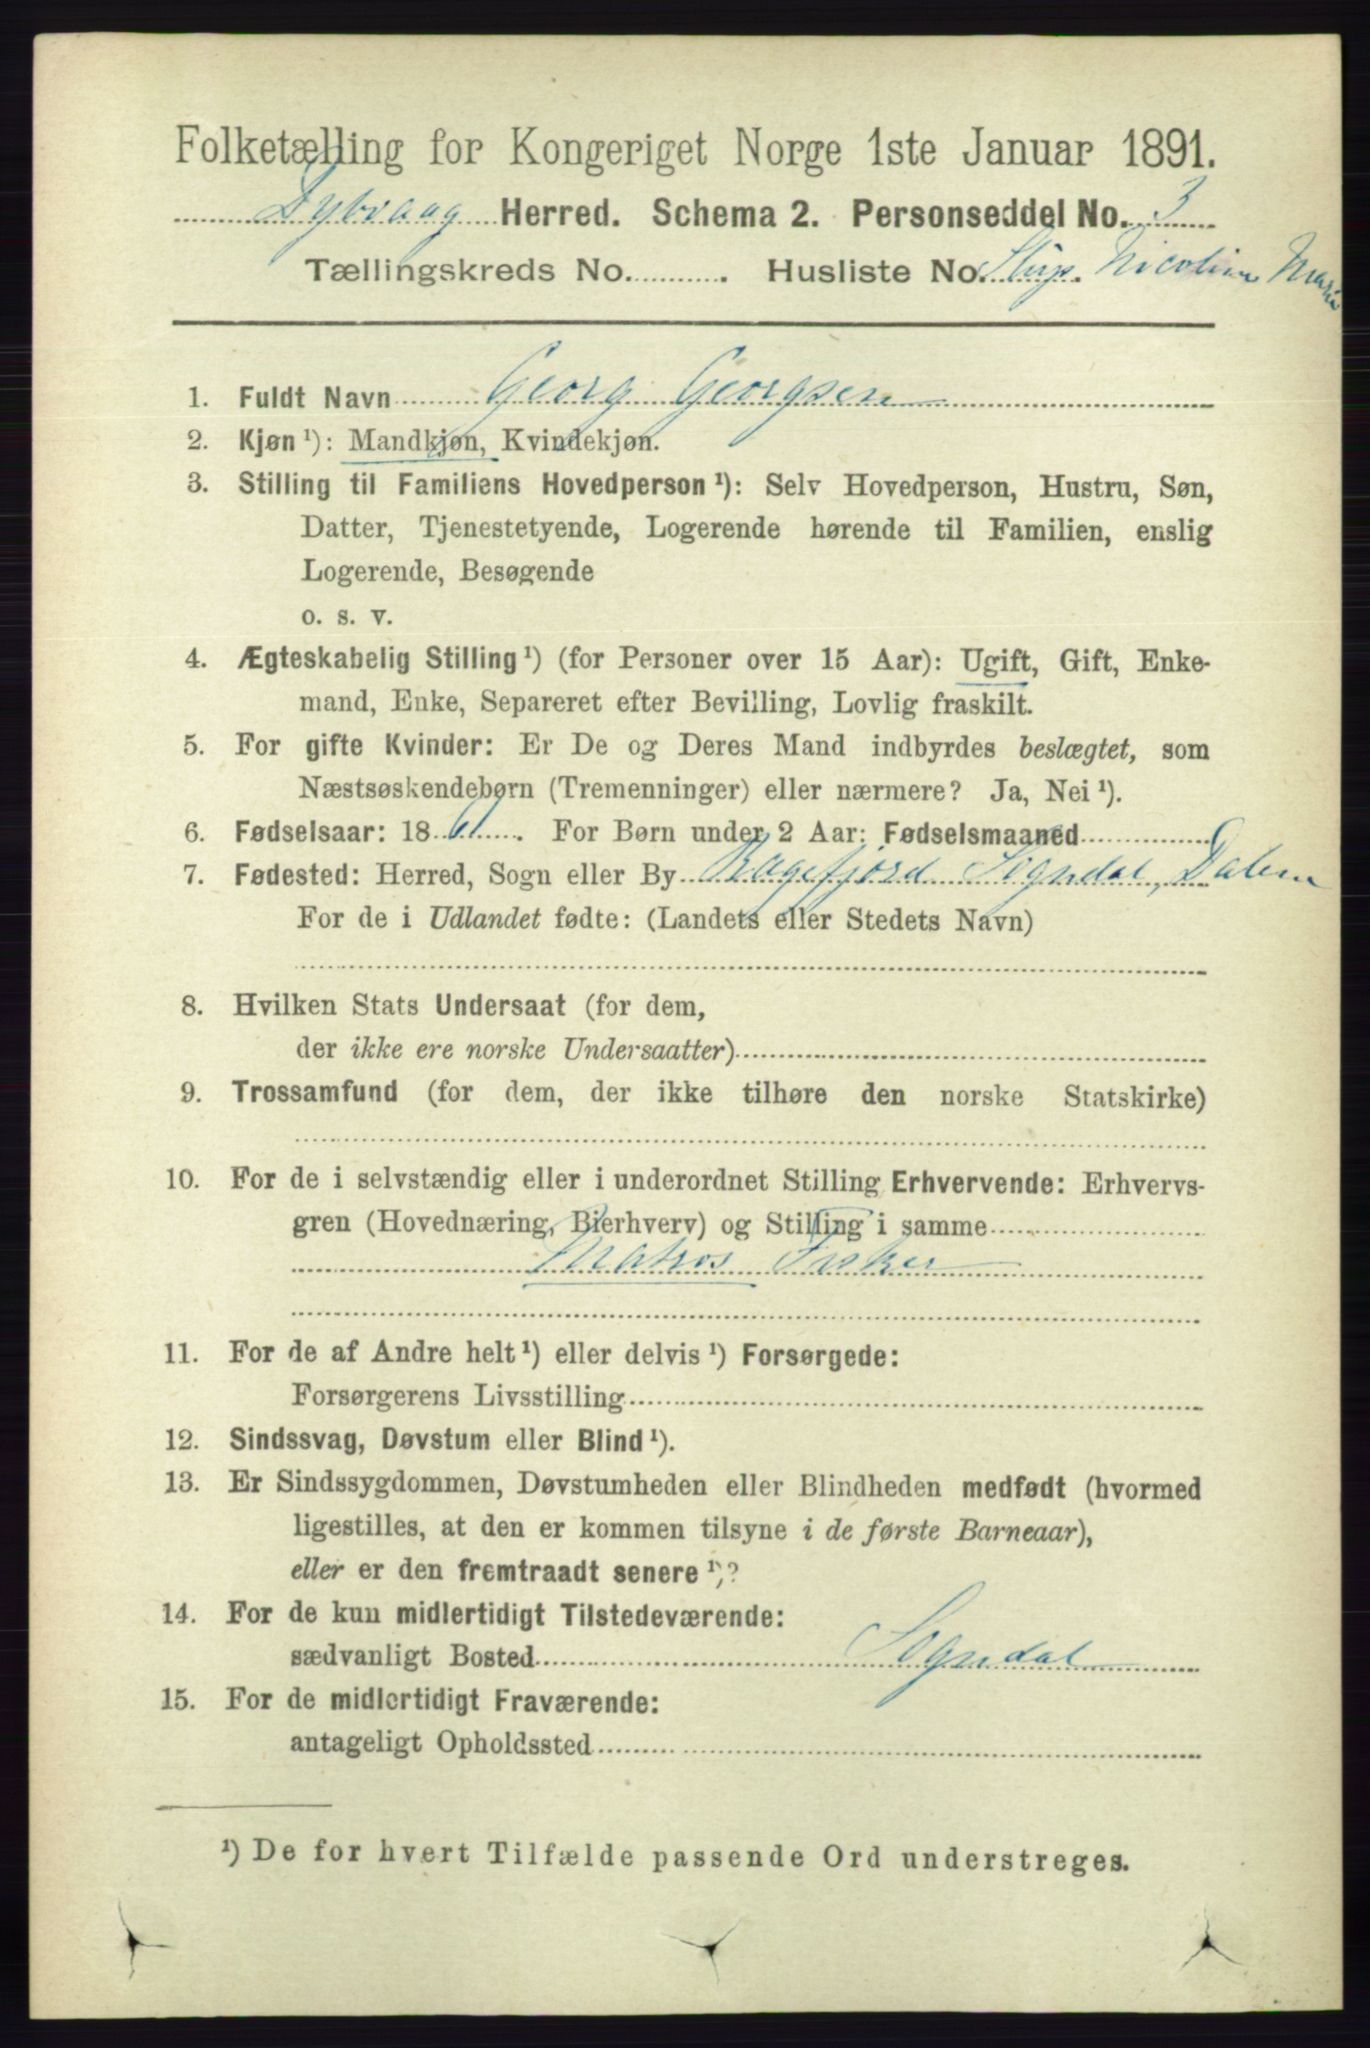 Folketælling for Kongeriget Norge 1ste Januar 1891.
Dybvaag Herred. Schema 2. Personseddel No. 3
Tællingskreds No. . Husliste No. Slup. Nicoline Marie
1. Fuldt Navn Georg Georgsen
2. Kjøn ¹): Mandkjøn, Kvindekjøn.
3. Stilling til Familiens Hovedperson ¹): Selv Hovedperson, Hustru, Søn,
Datter, Tjenestetyende, Logerende hørende til Familien, enslig
Logerende, Besøgende
o. s. v.
4. Ægteskabelig Stilling ¹) (for Personer over 15 Aar): Ugift, Gift, Enke-
mand, Enke, Separeret efter Bevilling, Lovlig fraskilt.
5. For gifte Kvinder: Er De og Deres Mand indbyrdes beslægtet, som
Næstsøskendebørn (Tremenninger) eller nærmere? Ja, Nei ¹).
6. Fødselsaar: 18 . For Børn under 2 Aar: Fødselsmaaned
7. Fødested: Herred, Sogn eller By Ragefjord Sogndal, Dalene
For de i Udlandet fødte: (Landets eller Stedets Navn)
8. Hvilken Stats Undersaat (for dem,
der ikke ere norske Undersaatter)
9. Trossamfund (for dem, der ikke tilhøre den norske Statskirke)
10. For de i selvstændig eller i underordnet Stilling Erhvervende: Erhvervs-
gren (Hovednæring, Bierhverv) og Stilling i samme
Matros Fisker
11. For de af Andre helt ¹) eller delvis ¹) Forsørgede:
Forsørgerens Livsstilling
12. Sindssvag, Døvstum eller Blind ¹).
13. Er Sindssygdommen, Døvstumheden eller Blindheden medfødt (hvormed
ligestilles, at den er kommen tilsyne i de første Barneaar),
eller er den fremtraadt senere ¹)?
14. For de kun midlertidigt Tilstedeværende:
sædvanligt Bosted Sogndal
15. For de midlertidigt Fraværende:
antageligt Opholdssted
¹) De for hvert Tilfælde passende Ord understreges.